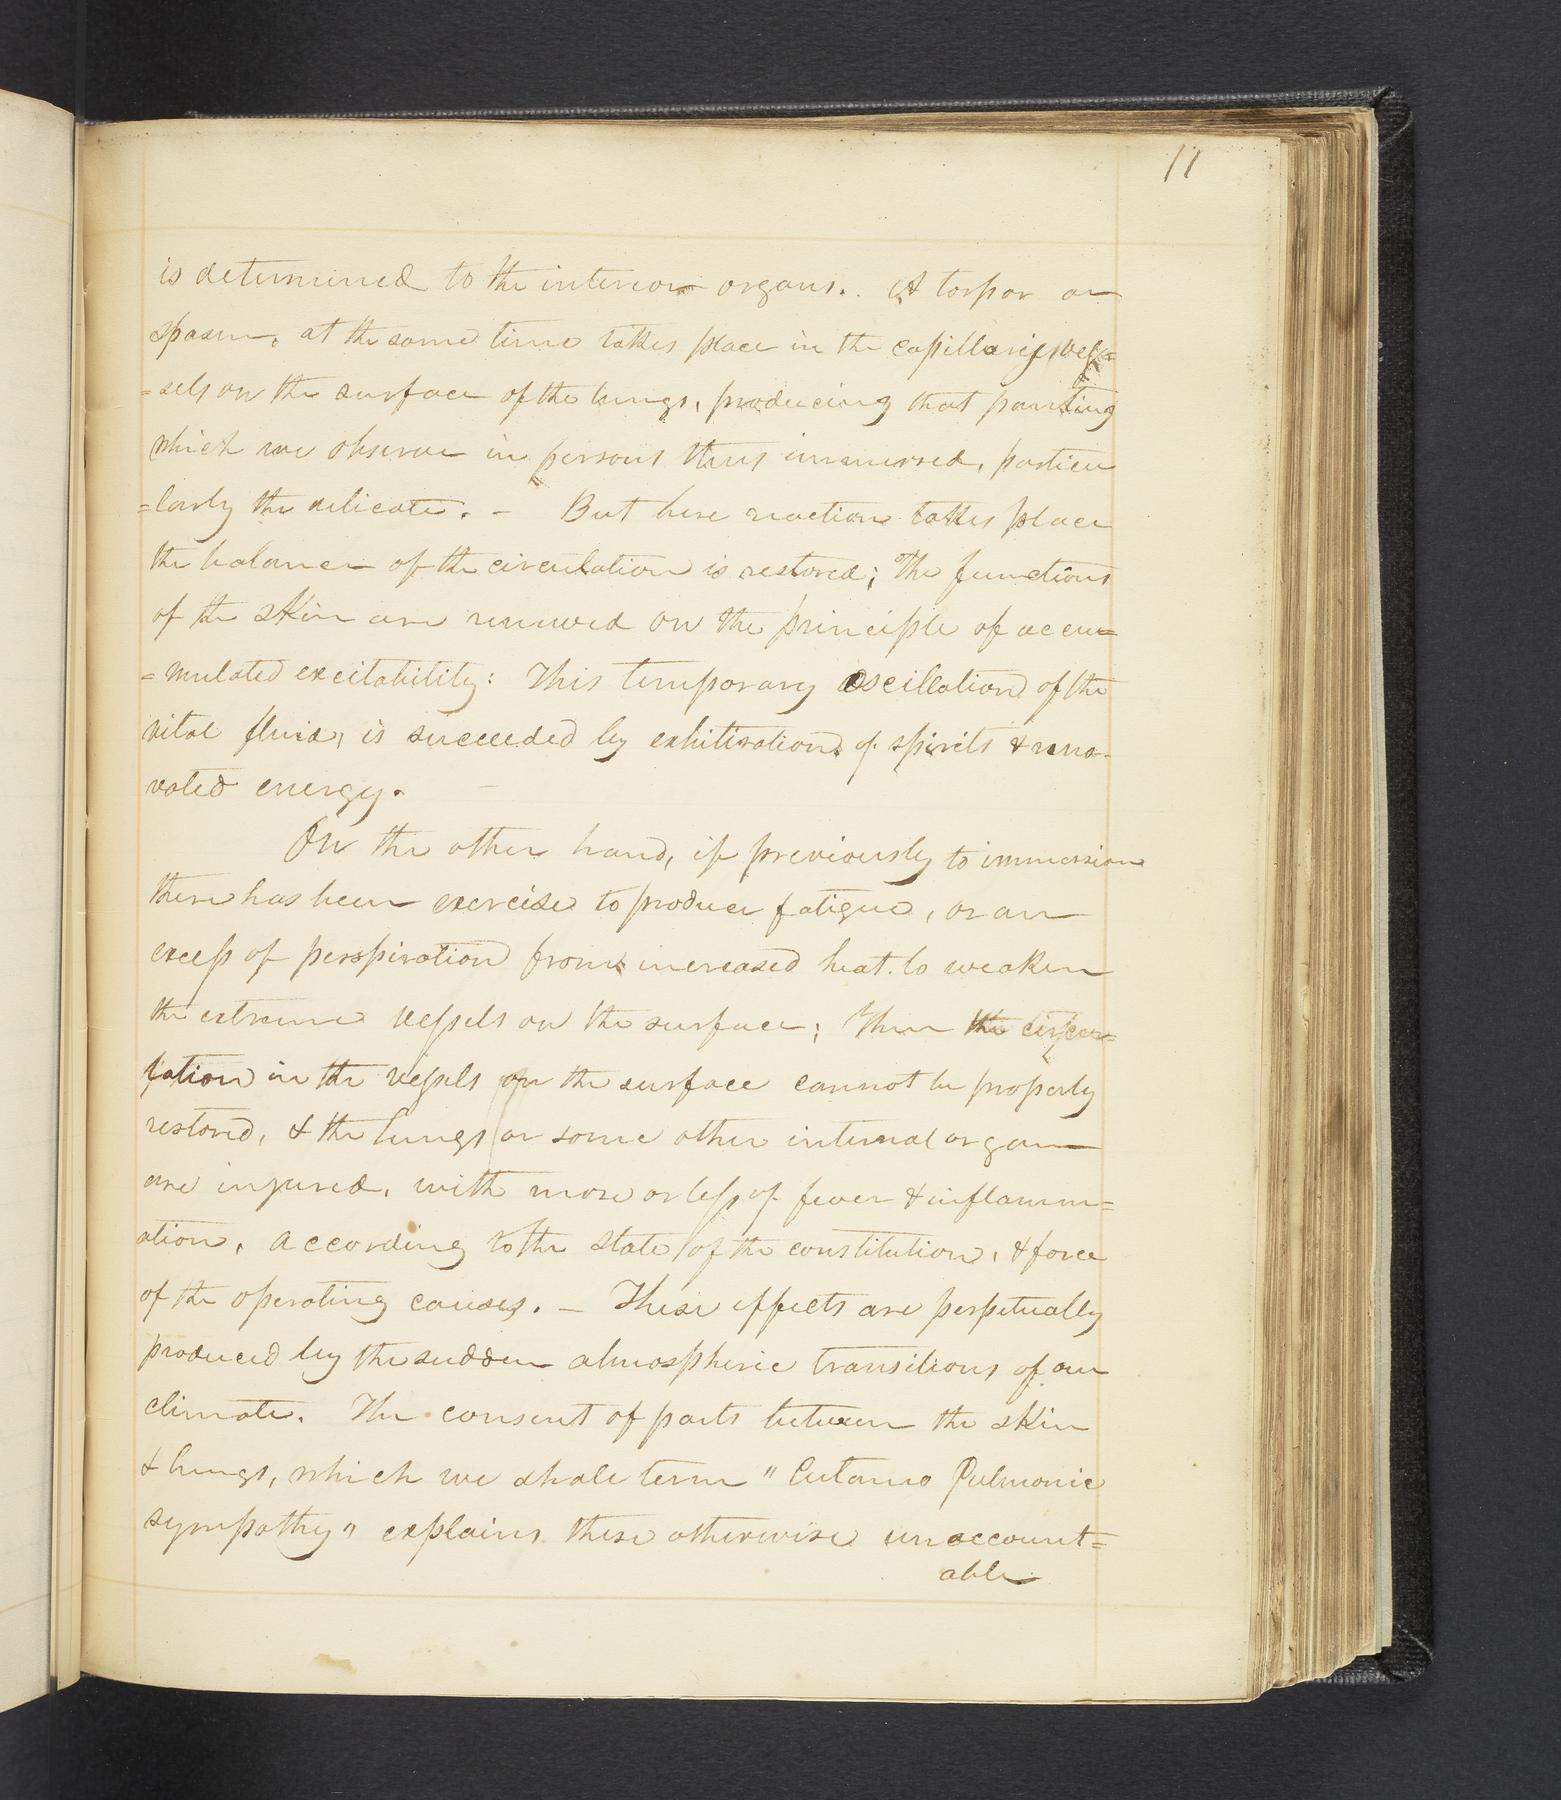 11
is determined to the interior organs. A torpor or
spasm, at the same time takes place in the capillary ves=
=sels on the surface of the lungs, producing that panting
which we observe in persons thus immersed, particu
=larly the delicate. – But here reaction takes place
the balance of the circulation is restored; The functions
of the skin are renewed on the principle of accu=
=mulated excitability: This temporary oscillation of the
vital fluid, is succeeded by exhiliration of spirits & reno-
vated energy.
On the other hand, if previously to immersion
there has been exercise to produce fatigue, or an
excess of perspiration from increased heat to weaken
the extreme vessels on the surface; Then the circu=
lation in the vessels on the surface cannot be properly
restored, & the lungs or some other internal organ
are injured, with more or less of fever & inflamm=
ation, according to the state of the constitution, & force
of the operating causes. – These effects are perpetually
produced by the sudden atmospheric transitions of our
climate. The consent of parts between the skin
& lungs, which we shall term "Cutano Pulmonic
sympathy" explains these otherwise unaccount=
able